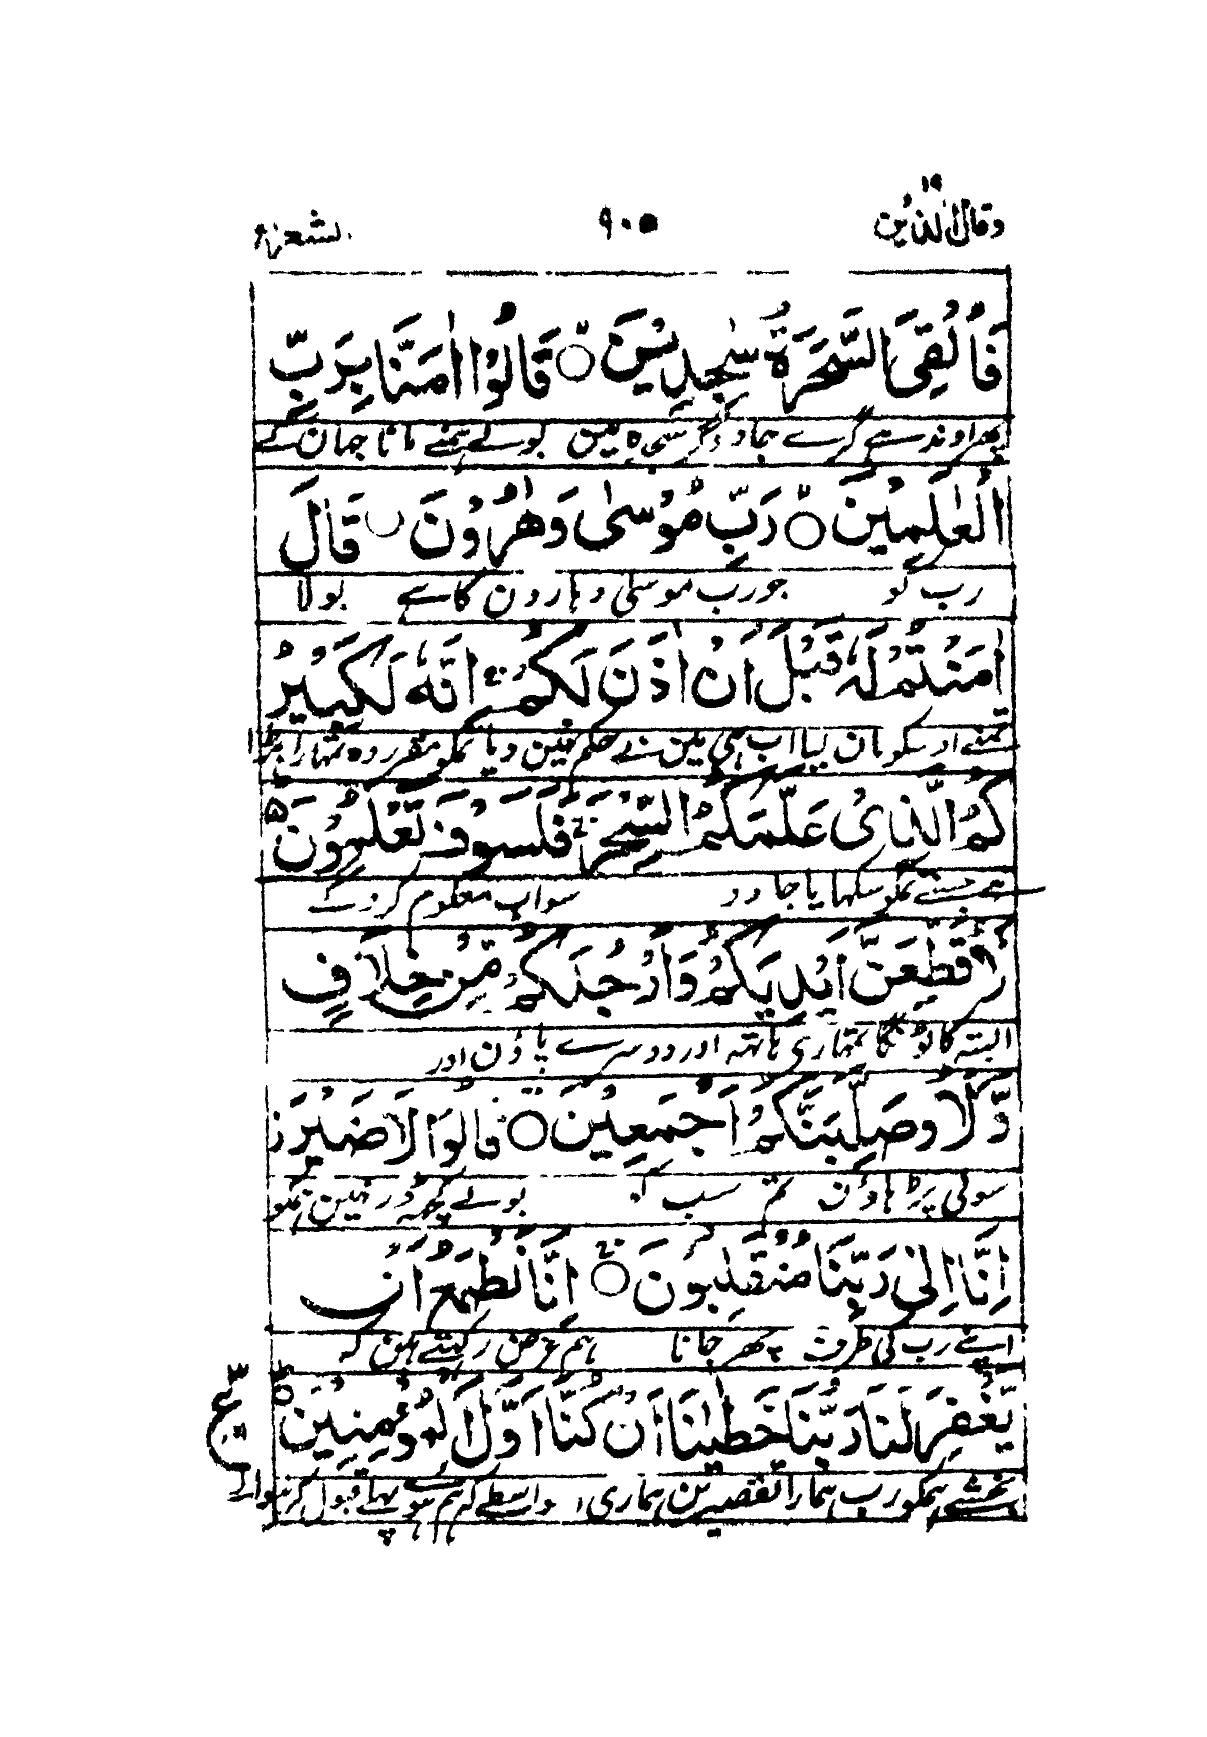 ۱۹
وقال الذین ۹۰۵ الشعراء
فَاُلْقِیَ السَّحَرَةُ سٰجِدِیْنَ ۝ قَالُوْا اٰمَنَّا بِرَبِّ
پھر اوندھے گرے جادوگر سجدہ مین بولے ہمنے مانا جہان کے
الْعٰلَمِیْنَ ۝ رَبِّ مُوْسٰی وَهٰرُوْنَ ۝ قَالَ
رب کو جو رب موسٰی و ہارون کا ہے بولا
اٰمَنْتُمْ لَهٗ قَبْلَ اَنْ اٰذَنَ لَكُمْ ۚ اِنَّهٗ لَكَبِیْرُ
تمنے اوسکو مان لیا اب ہی مین نے حکم نہین دیا تمکو مقرر وہ تمہارا بڑا
كُمُ الَّذِیْ عَلَّمَكُمُ السِّحْرَ ۚ فَلَسَوْفَ تَعْلَمُوْنَ ۵
ہے جسنے تمکو سکہایا جادو سو اب معلوم کروگے
لَاُقَطِّعَنَّ اَیْدِیَكُمْ وَاَرْجُلَكُمْ مِّنْ خِلَافٍ
البتہ کاٹونگا تمہاری ہاتہہ اور دوسرے پاؤن اور
وَّلَاُوصَلِّبَنَّكُمْ اَجْمَعِیْنَ ۝ قَالُوْا لَا ضَیْرَ ز
سولی چڑہاؤن تم سب کو بولے کچہہ ڈر نہین ہمکو
اِنَّا اِلٰی رَبِّنَا مُنْقَلِبُوْنَ ۝ اِنَّا نَطْمَعُ اَنْ
اپنے رب کی طرف پھر جانا ہم غرض رکہتے ہین کہ
یَّغْفِرَ لَنَا رَبُّنَا خَطٰیٰنَا اَنْ كُنَّا اَوَّلَ الْمُؤْمِنِیْنَ ۝ ع
بخشے ہمکو رب ہمارا تقصیرین ہماری واسطے کہ ہم ہوے پہلے قبول کرنیوالے